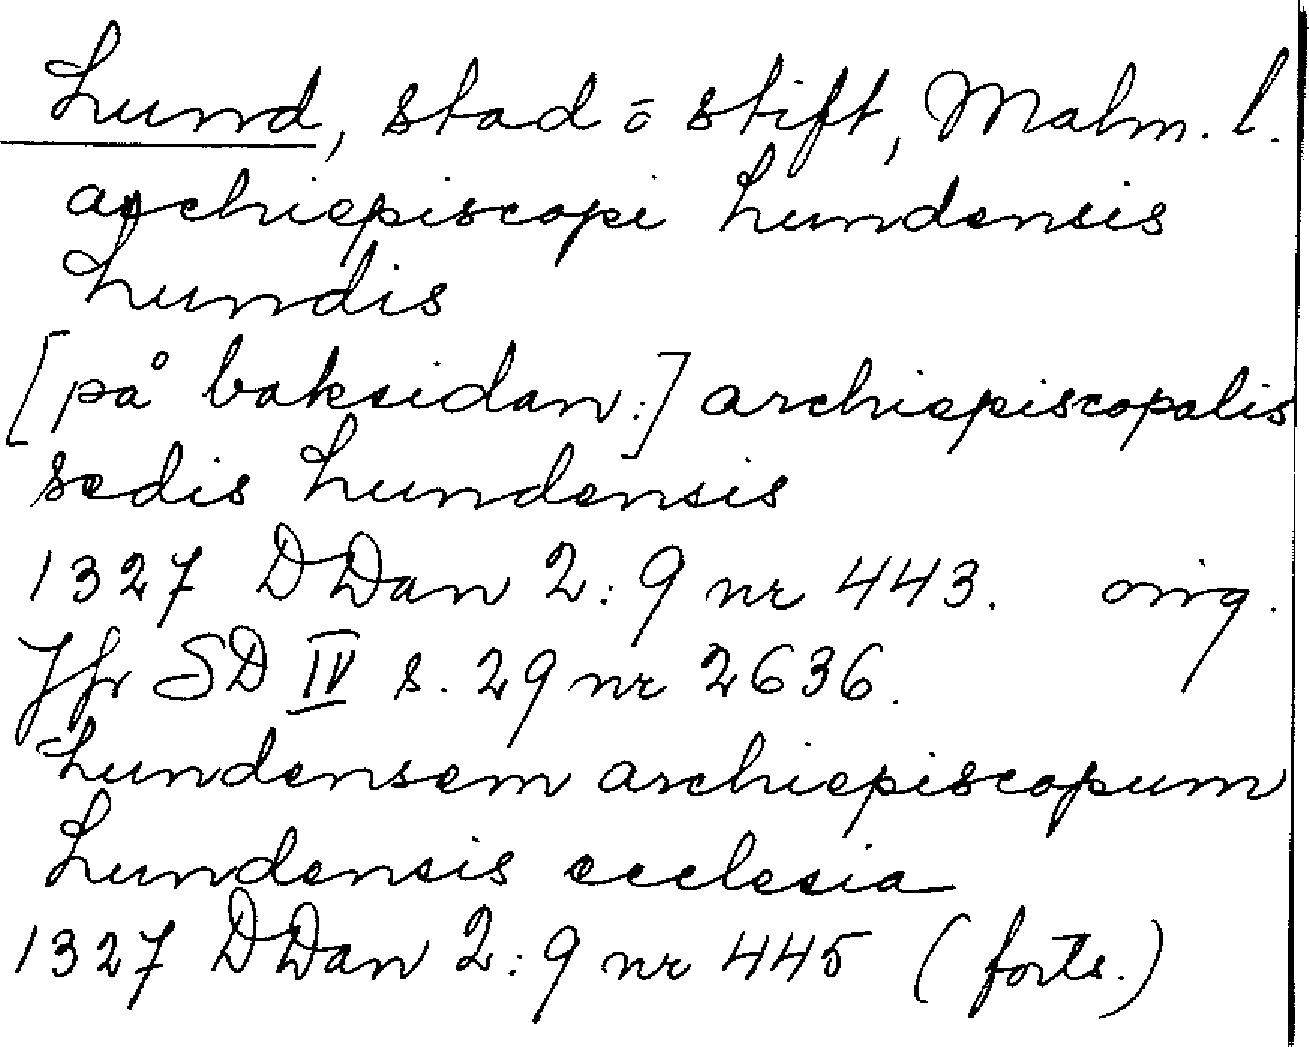 Lund, stad o stift, Malm. l.
archiepiscopi Lundensis
Lundis
[på baksidan:] archiepiscopalis
sedis Lundensis
1327 DDan 2:9 nr 443. orig.
Jfr SD IV s. 29 nr 2636.
Lundensem archiepiscopum
Lundensis ecclesia
1327 DDan 2:9 nr 445 (forts.)